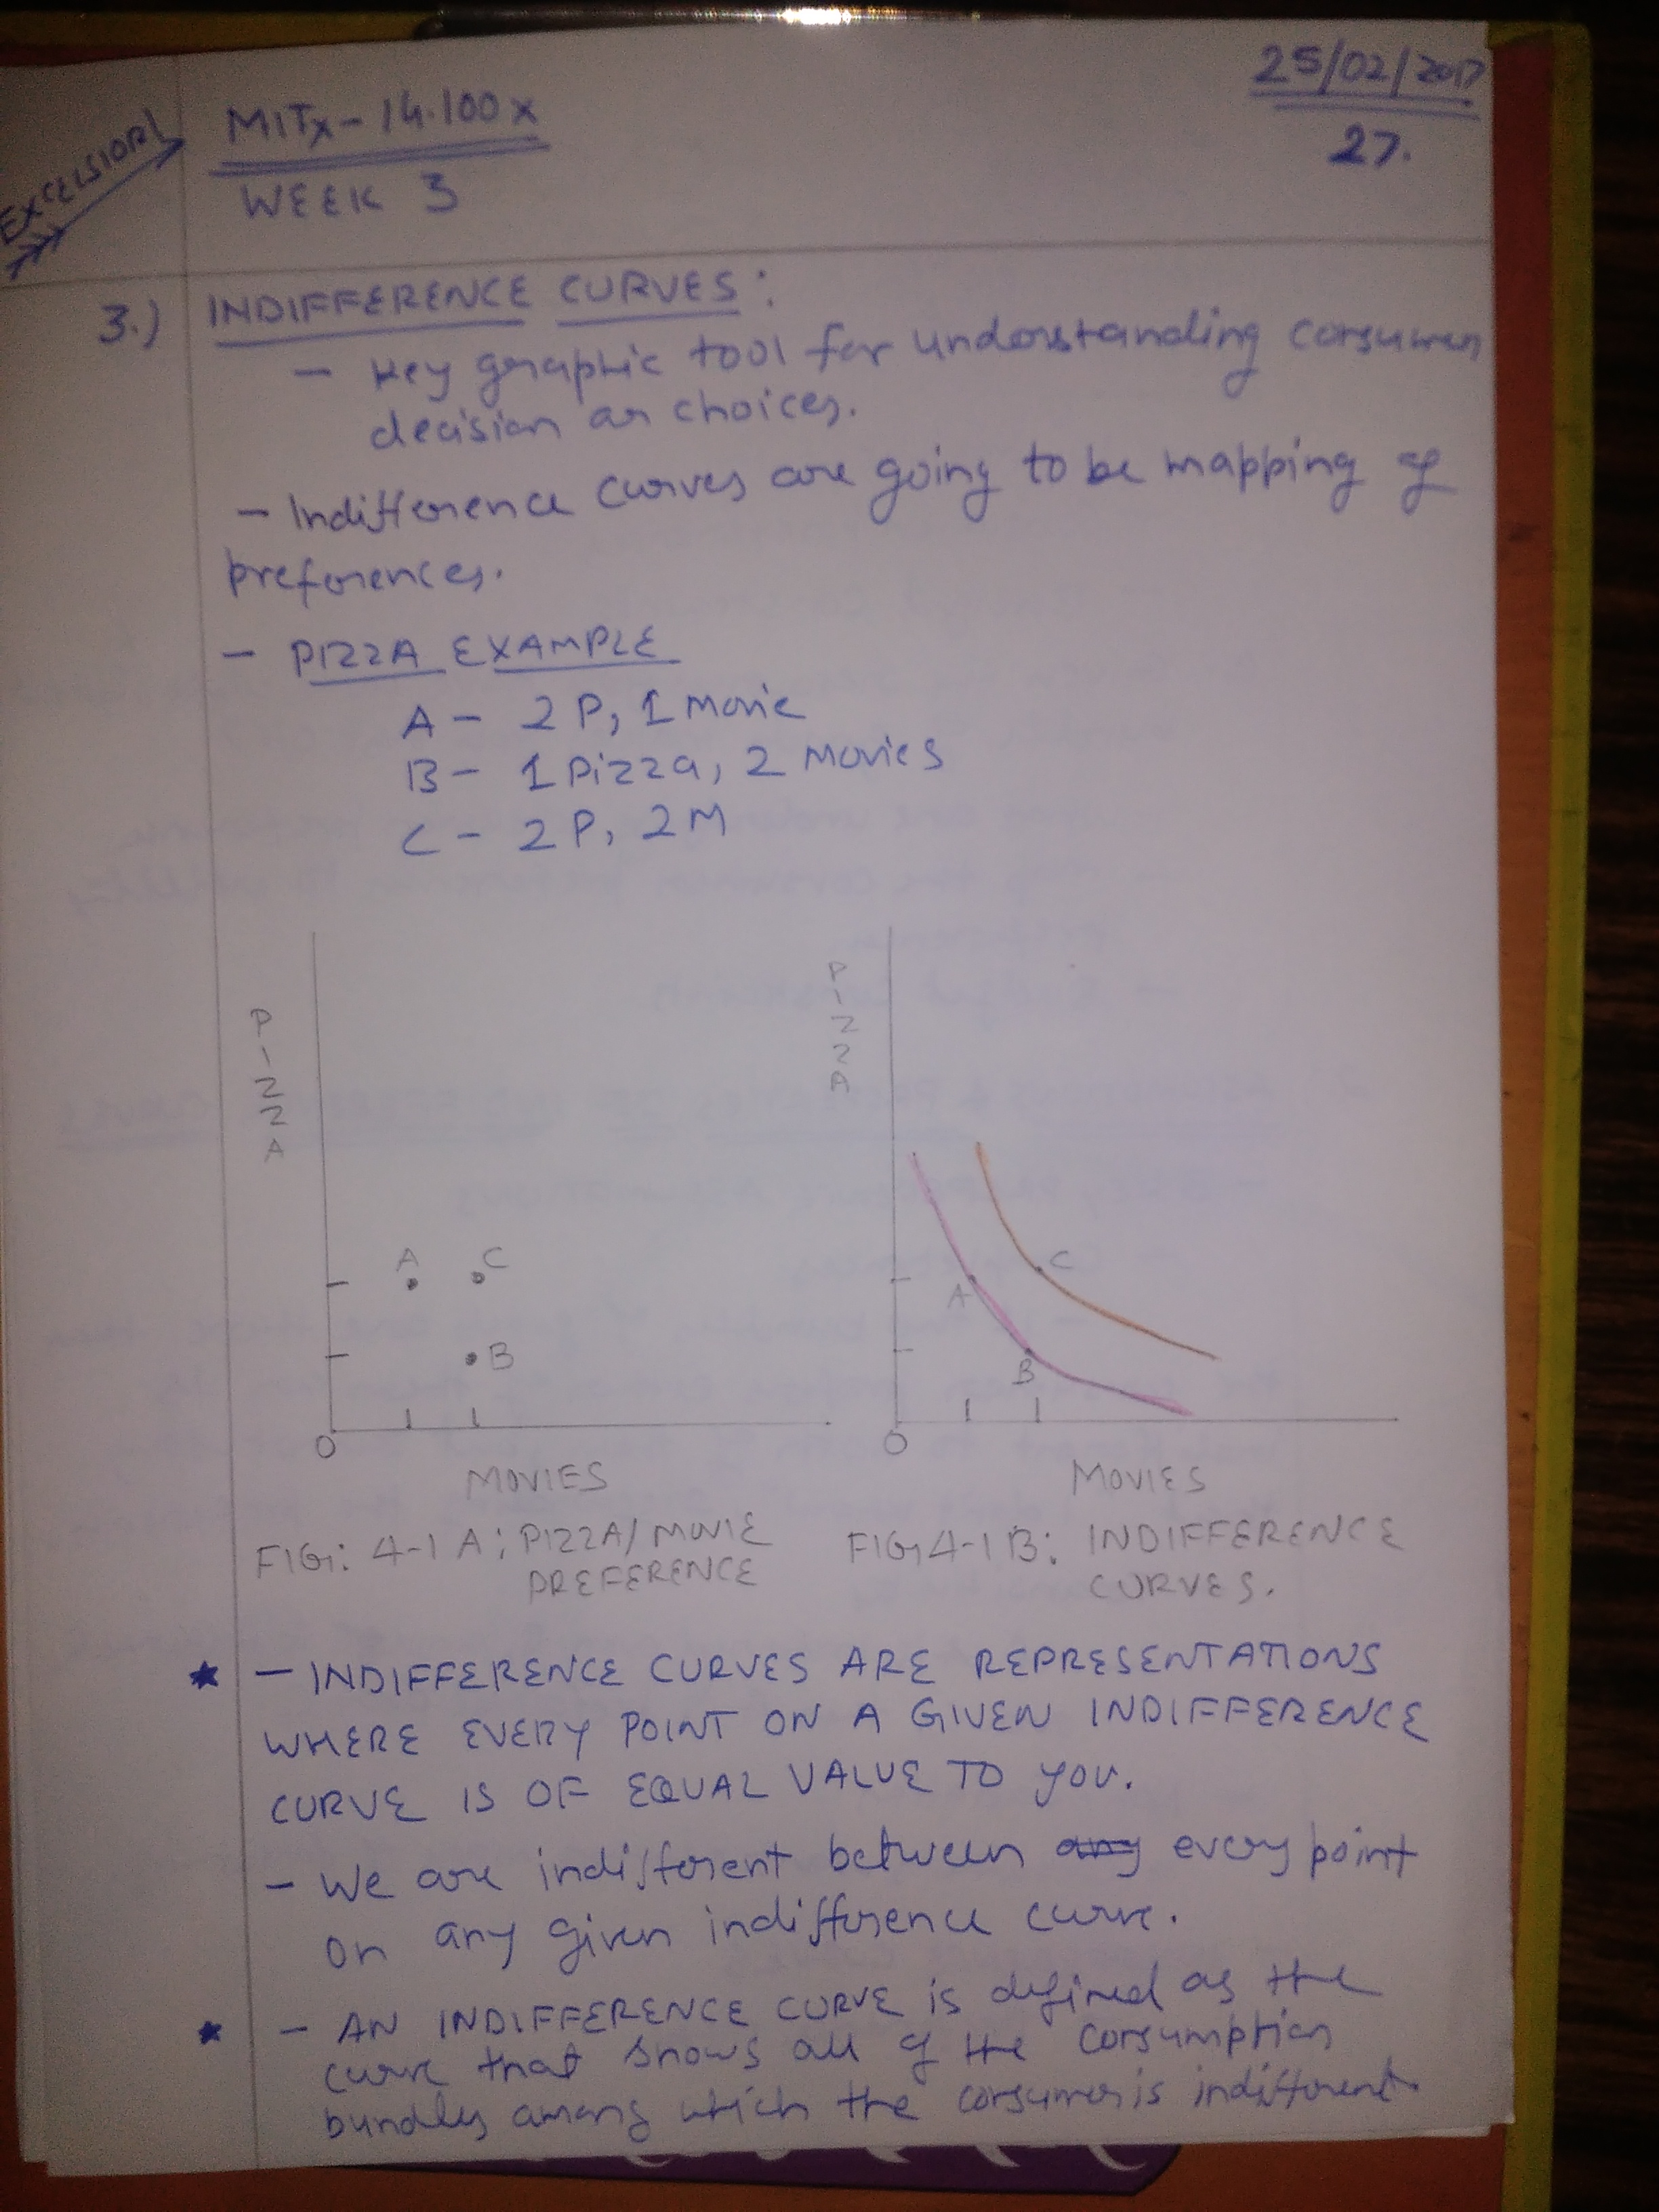 EXCELSIOR!
MITx - 14.100x
25/02/2017
WEEK 3
27.
3.) INDIFFERENCE CURVES:
- Key graphic tool for understanding consumer
decision or choices.
- Indifference curves are going to be mapping of
preferences.
- PIZZA EXAMPLE
A - 2 P, 1 movie
B - 1 Pizza, 2 movies
C - 2 P, 2 M
PIZZA
A
C
B
O
MOVIES
FIG: 4-1 A: PIZZA/MOVIE
PREFERENCE
PIZZA
C
A
B
O
MOVIES
FIG 4-1 B: INDIFFERENCE
CURVES.
★ - INDIFFERENCE CURVES ARE REPRESENTATIONS
WHERE EVERY POINT ON A GIVEN INDIFFERENCE
CURVE IS OF EQUAL VALUE TO YOU.
- We are indifferent between any every point
on any given indifference curve.
★ - AN INDIFFERENCE CURVE is defined as the
curve that shows all of the consumption
bundles among which the consumer is indifferent.